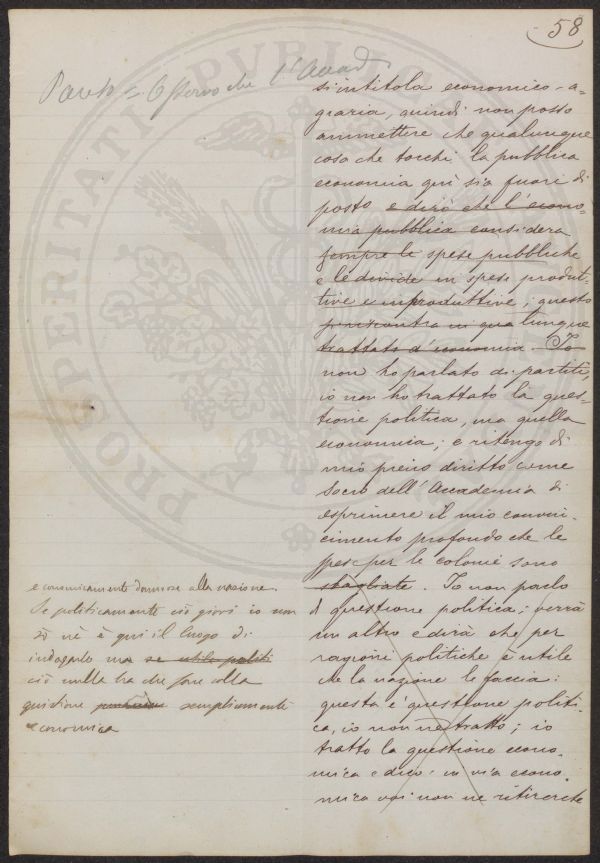 58
Pareto = Osservo che l'Accad
si intitola economico-a-
graria, quindi non posso
ammettere che qualunque
cosa che tocchi la pubblica
economia qui sia fuori di
posto e dirò che l'econo-
mia pubblica considera
sempre le spese pubbliche
e le divide in spese produt-
tive e improduttive; questo
si riscontra in qualunque
trattato d'economia. Io
non ho parlato di partiti,
io non ho trattato la ques-
tione politica, ma quella
economica; e ritengo di
mio preciso diritto come
socio dell'Accademia di
esprimere il mio convin-
cimento profondo che le
spese per le colonie sono
sbagliate. Io non parlo
di questione politica; verrà
un altro e dirà che per
ragioni politiche è utile
che la nazione le faccia:
questa è questione politi-
ca, io non ne tratto; io
tratto la questione econo-
mica e dico: in via econo-
mica voi non ne ritirerete
economicamente dannose alla nazione.
Se politicamente ciò giovi io non
so nè è qui il luogo di
indagarlo ma se utile politi
ciò nulla ha che fare colla
quistione semplicemente
economica
PROSPERITATI PVBLICAE